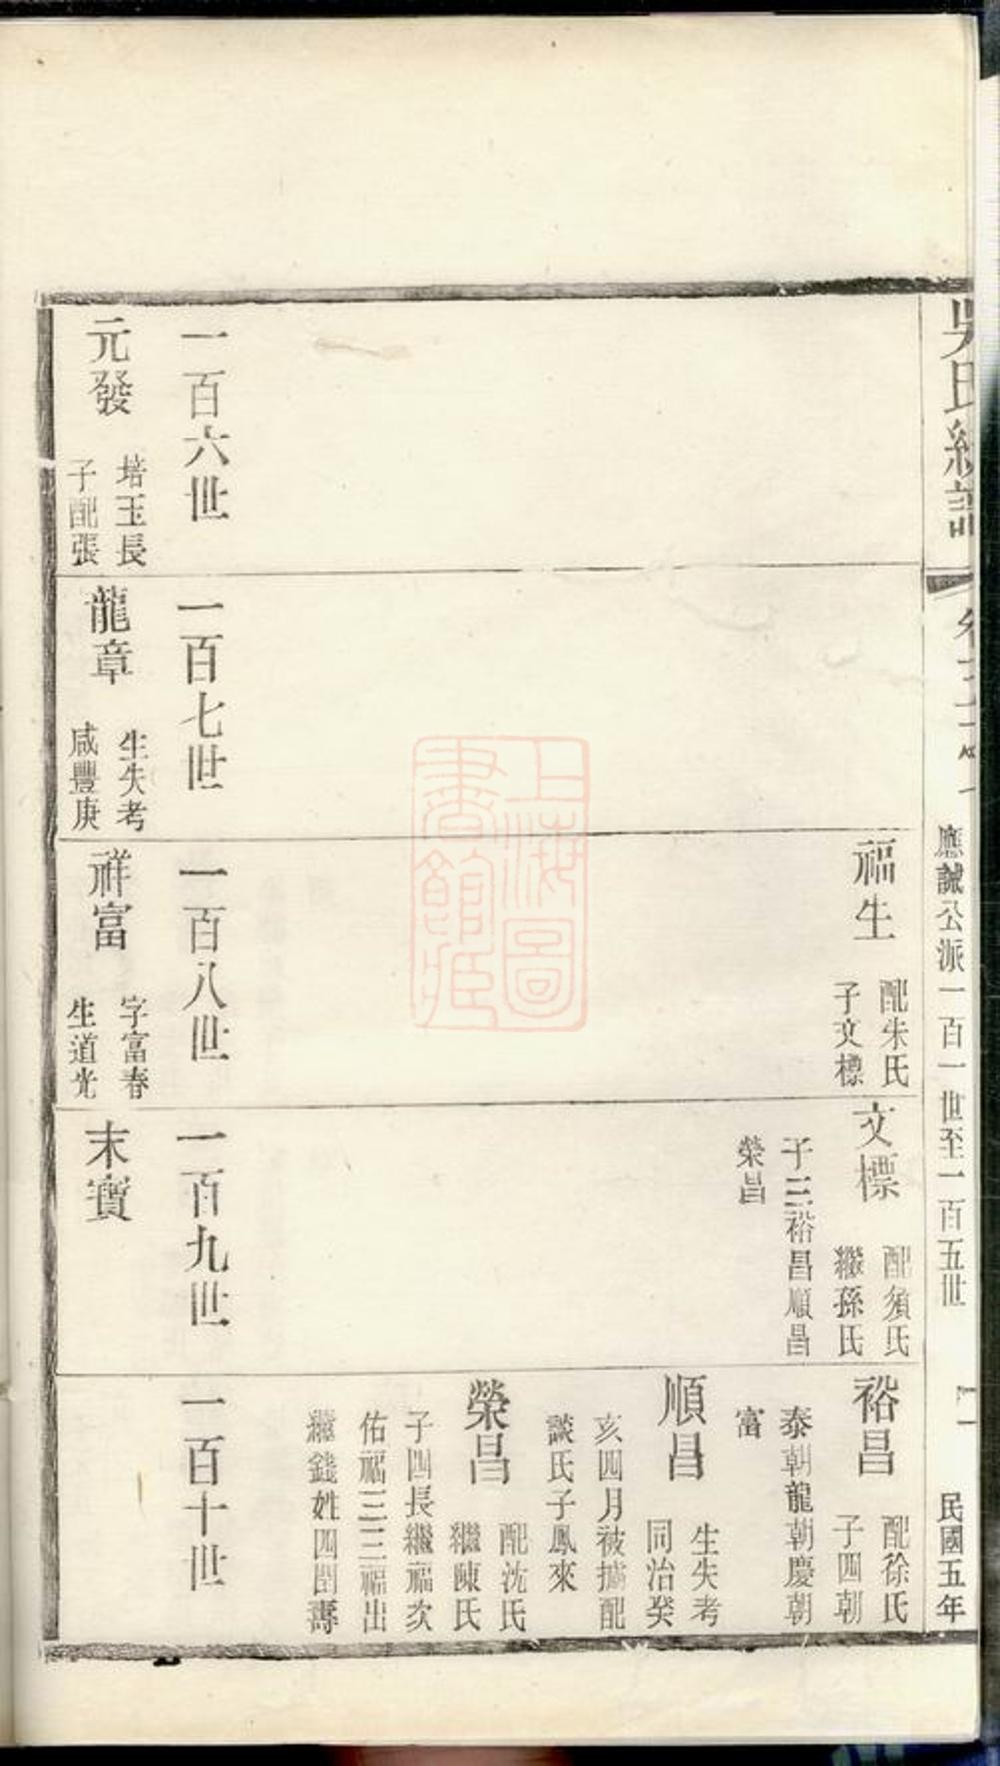 吳氏統譜
應誠公派一百一世至一百五世
民國五年
福生
配朱氏
子文標
文標
配須氏
繼孫氏
子三裕昌順昌
榮昌
裕昌
配徐氏
子四朝
泰朝龍朝慶朝
富
順昌
生失考
同治癸
亥四月被擄配
談氏子鳳來
榮昌
配沈氏
繼陳氏
子四長繼福次
佑福三三福出
繼錢姓四閏壽
一百六世
一百七世
一百八世
一百九世
一百十世
元發
培玉長
子配張
龍章
生失考
咸豐庚
祥富
字富春
生道光
末寶
上海圖
書館藏